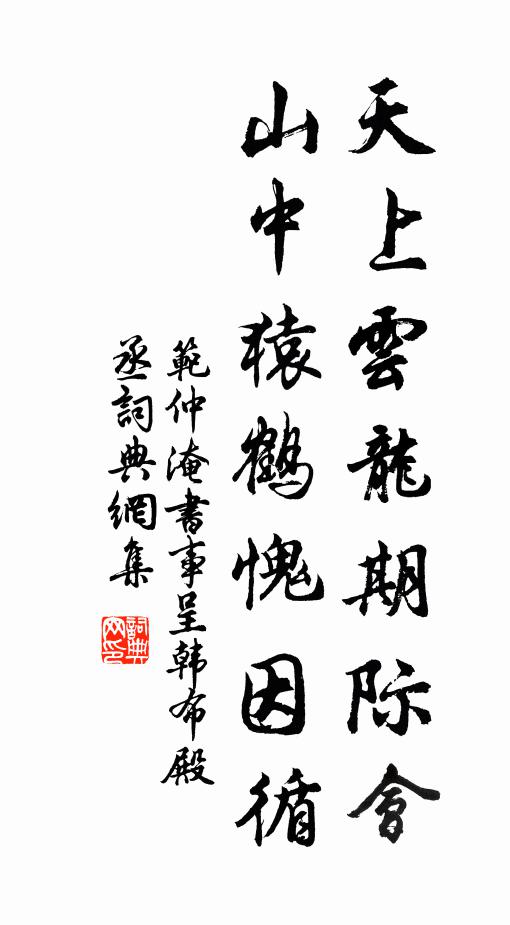 天上雲龍期际會
山中猿鶴愧因循
範仲淹書事呈韩布殿
丞詞典網集
詞典网印